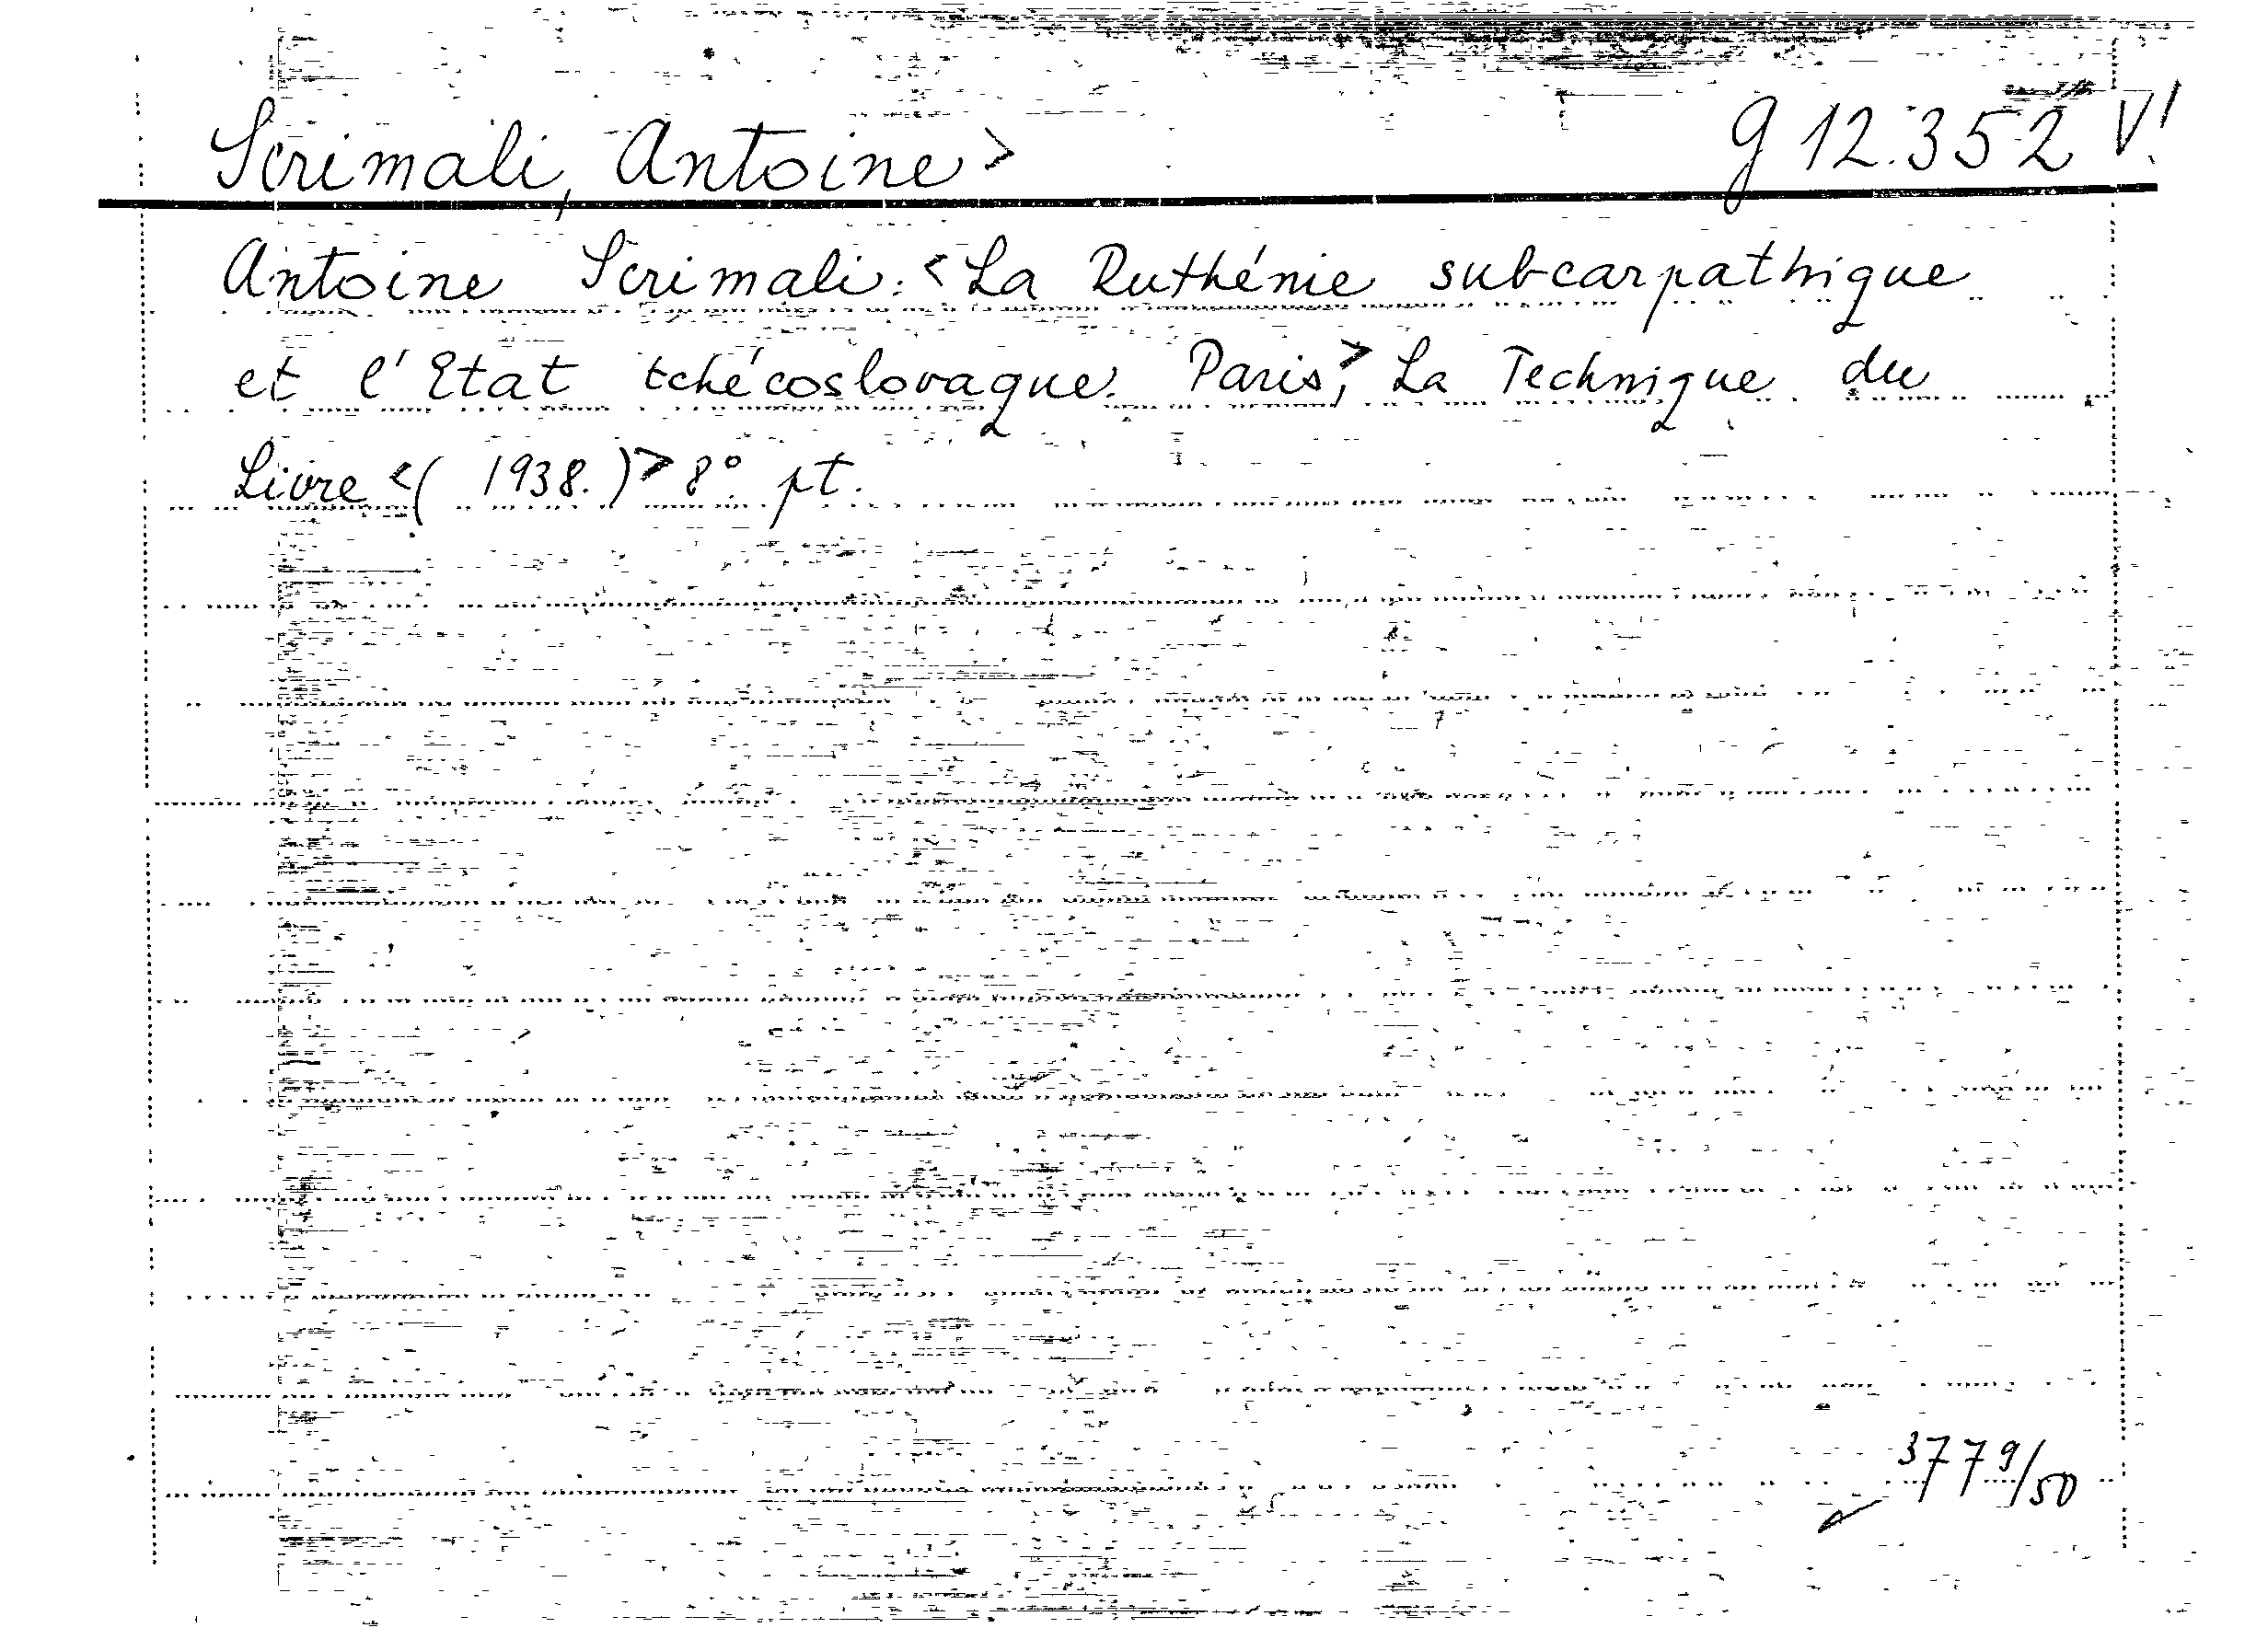 Scrimali, Antoine> g 12.352 V!
Antoine Scrimali: <La Ruthénie subcarpathique
et l'Etat tchécoslovaque. Paris,> La Technique du
Livre <( 1938.)> 8° pt.
3779/50